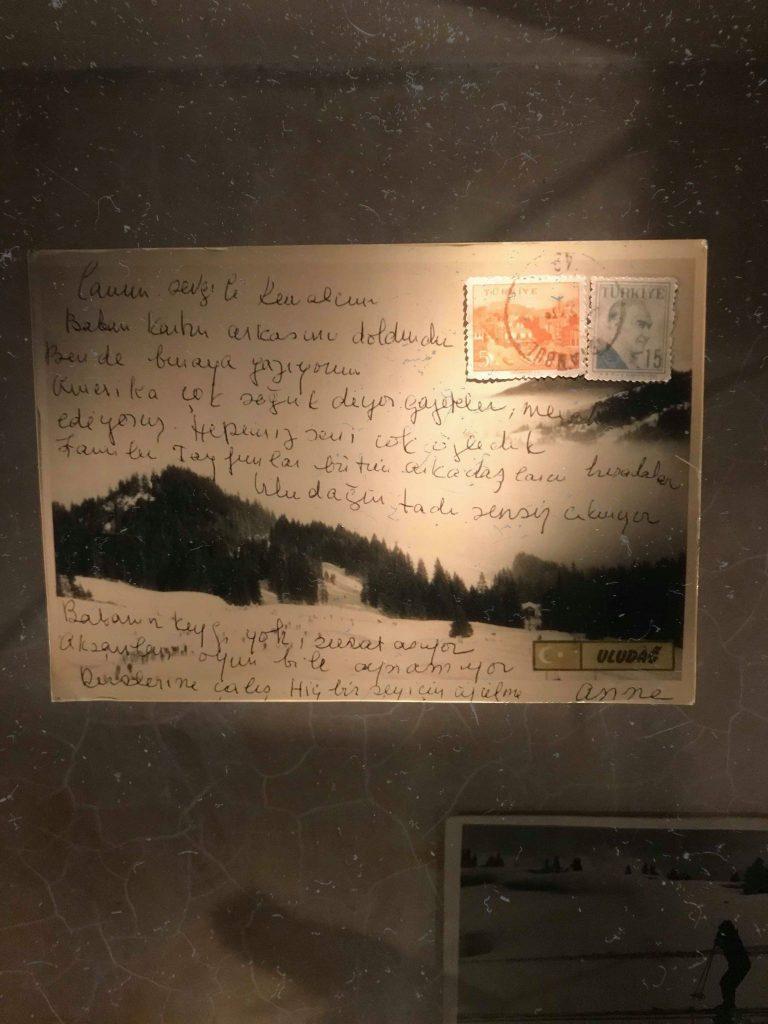 Canım sevgili Kemalcim
Baban kartın arkasını doldurdu
Ben de buraya yazıyorum
Amerika çok soğuk diyor gazeteler, merak
ediyoruz. Hepimiz seni çok özledik
Tayfunlar bütün arkadaşların buradalar
Uludağın tadı sensiz çıkmıyor
Babanın keyfi yok, surat asıyor
Akşamları oyun bile oynamıyor
Derslerine çalış Hiç bir şey için üzülme
anne
TÜRKİYE
5
TÜRKİYE
15
ULUDAĞ